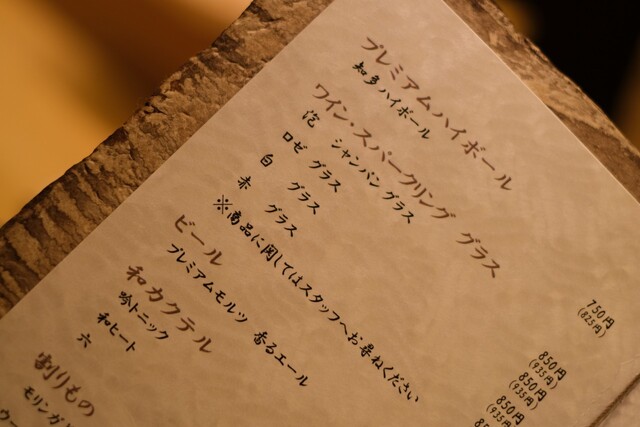 プレミアムハイボール
知多ハイボール
750円
(825円)
ワイン・スパークリング グラス
泡 シャンパン グラス
ロゼ グラス
850円
(935円)
白 グラス
850円
(935円)
赤 グラス
850円
(935円)
※商品に関してはスタッフへお尋ねください
ビール
プレミアムモルツ 香るエール
和カクテル
吟トニック
和ヒート
六
割りもの
モリンガ
ウー